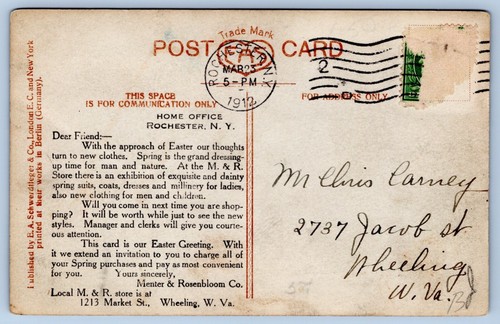 Trade Mark
POST CARD
ROCHESTER, N.Y.
MAR 23
5-PM
1912
2
THIS SPACE
IS FOR COMMUNICATION ONLY
FOR ADDRESS ONLY
HOME OFFICE
ROCHESTER, N. Y.
Dear Friend:—
With the approach of Easter our thoughts
turn to new clothes. Spring is the grand dressing-
up time for man and nature. At the M. & R.
Store there is an exhibition of exquisite and dainty
spring suits, coats, dresses and millinery for ladies,
also new clothing for men and children.
Will you come in next time you are shop-
ping? It will be worth while just to see the new
styles. Manager and clerks will give you courte-
ous attention.
This card is our Easter Greeting. With
it we extend an invitation to you to charge all
of your Spring purchases and pay as most convenient
for you. Yours sincerely,
Menter & Rosenbloom Co.
Local M. & R. store is at
1213 Market St., Wheeling, W. Va.
Mr Chris Carney
2737 Jacob st
Wheeling
W. Va.
Published by E. A. Schwerdtfeger & Co., London E. C. and New York
printed at their works in Berlin (Germany).